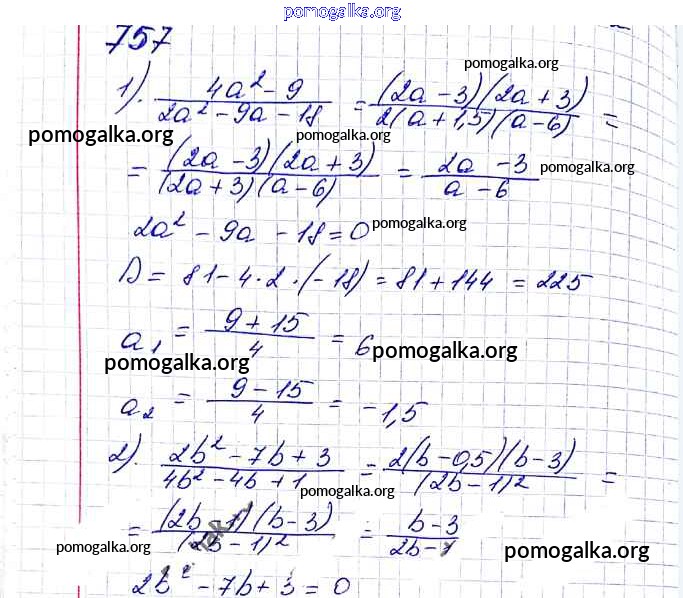 pomogalka.org
757
pomogalka.org
1). (4a² - 9)/(2a² - 9a - 18) = ((2a - 3)(2a + 3))/(2(a + 1,5)(a - 6)) =
pomogalka.org
= ((2a - 3)(2a + 3))/((2a + 3)(a - 6)) = (2a - 3)/(a - 6)
pomogalka.org
2a² - 9a - 18 = 0
pomogalka.org
D = 81 - 4 · 2 · (-18) = 81 + 144 = 225
a₁ = (9 + 15)/4 = 6
pomogalka.org
pomogalka.org
a₂ = (9 - 15)/4 = -1,5
2). (2b² - 7b + 3)/(4b² - 4b + 1) = (2(b - 0,5)(b - 3))/((2b - 1)²) =
pomogalka.org
= ((2b - 1)(b - 3))/((2b - 1)²) = (b - 3)/(2b - 1)
pomogalka.org
pomogalka.org
2b² - 7b + 3 = 0